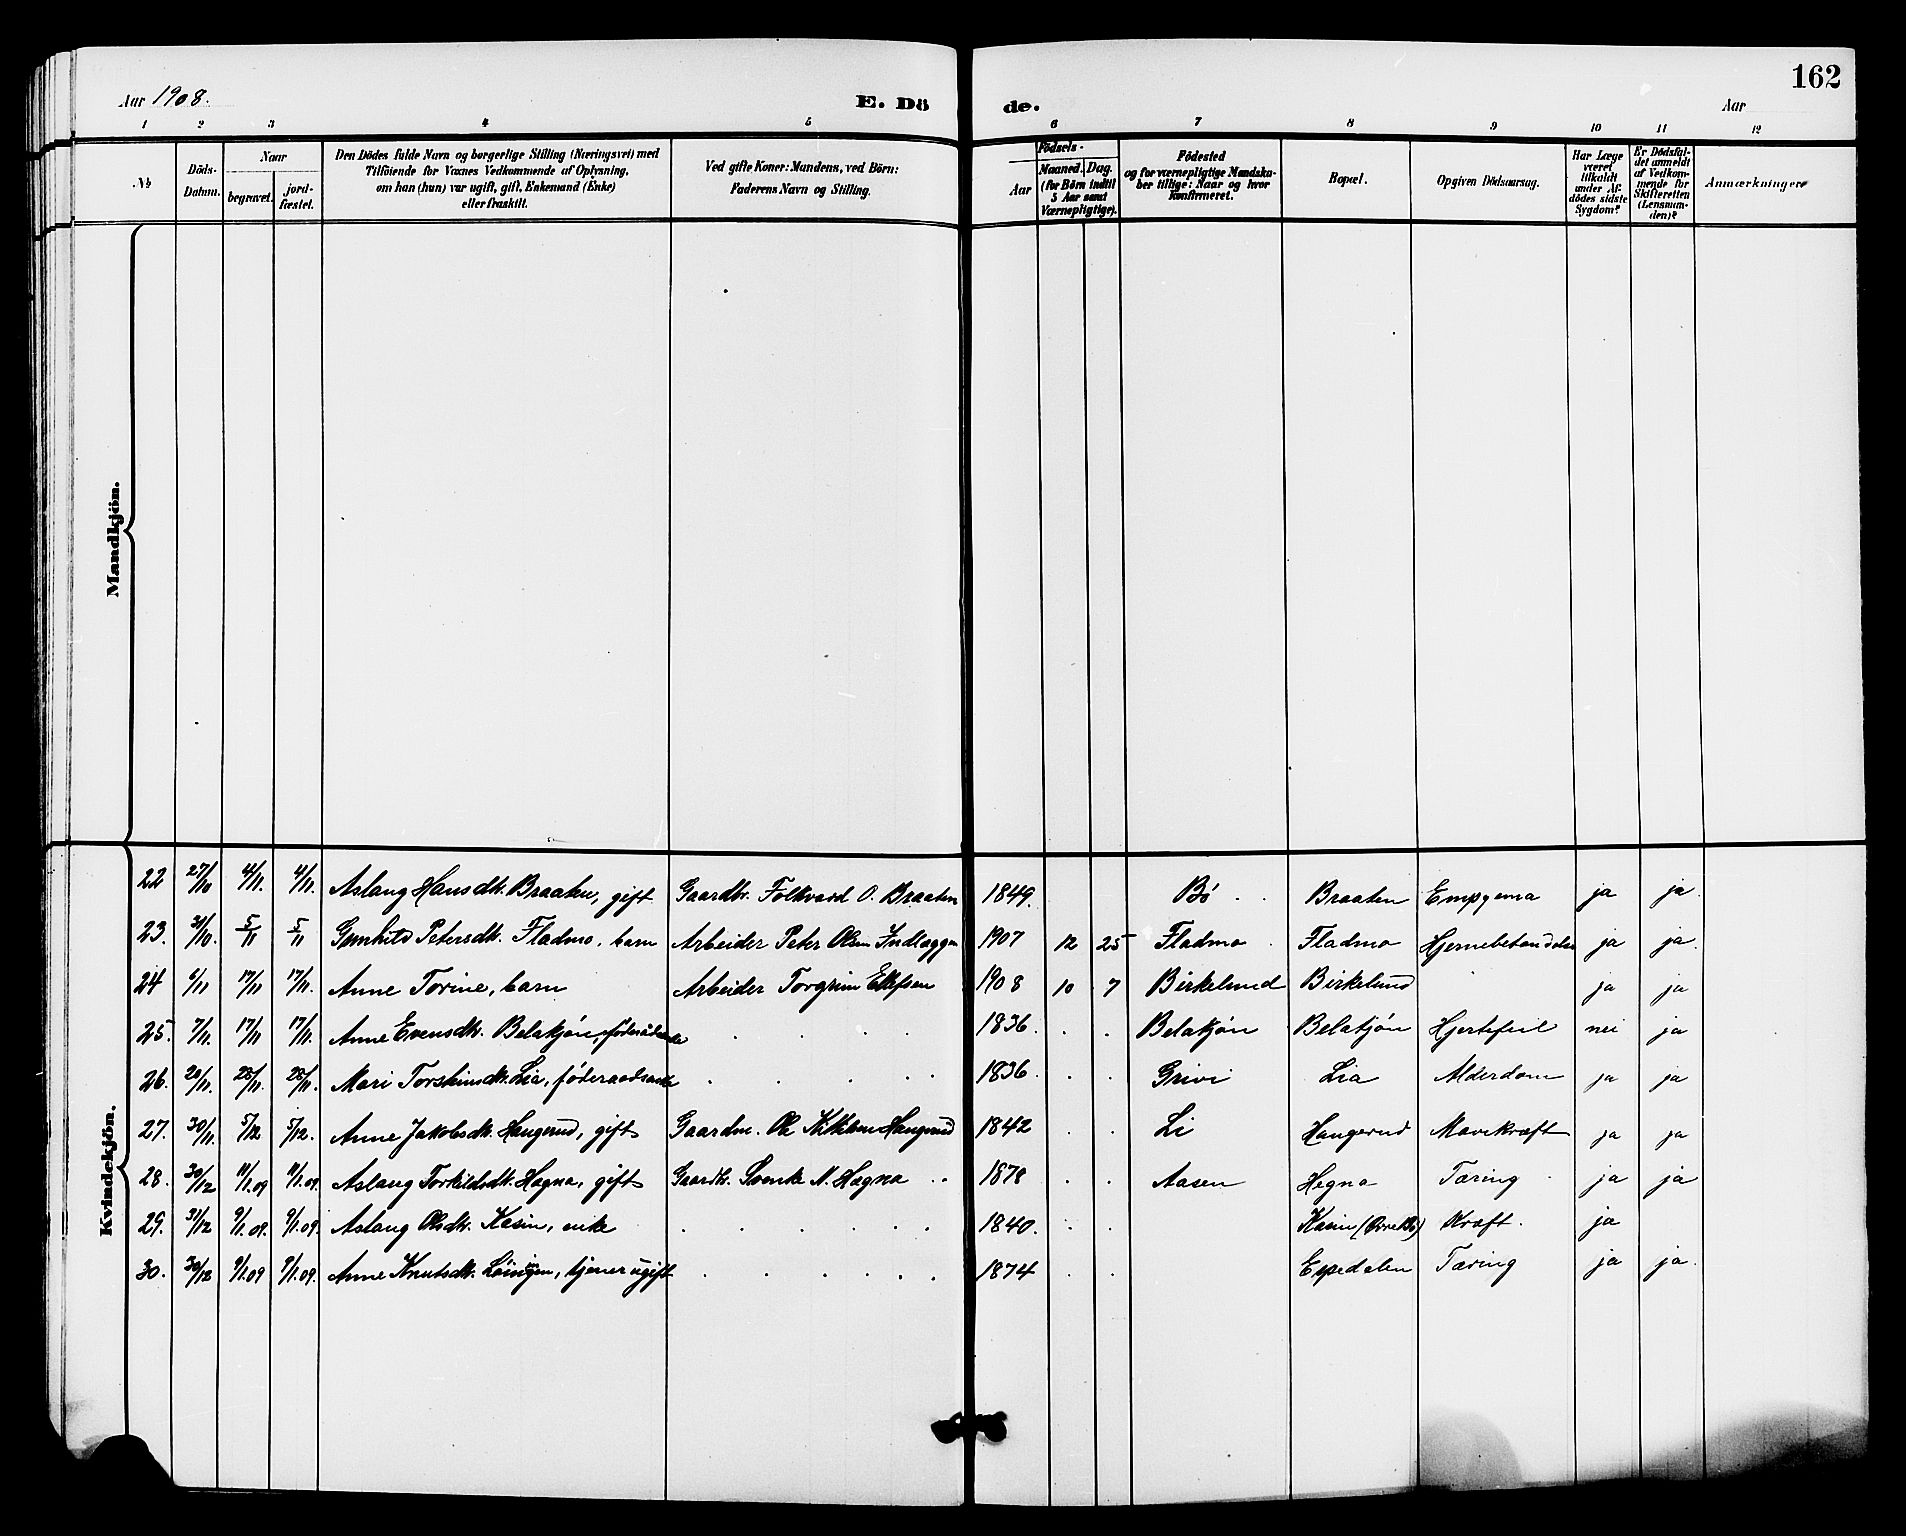 162
Aar 1908.
E. Döde.
Aar
1 2 3 4 5 6 7 8 9 10 11 12
№
Döds-Datum.
Naar
begravet.
jord-fæstet.
Den Dödes fulde Navn og borgerlige Stilling (Næringsvei) med
Tilföiende for Voxnes Vedkommende af Oplysning,
om han (hun) var ugift, gift, Enkemand (Enke)
eller fraskilt.
Ved gifte Koner: Mandens, ved Börn:
Faderens Navn og Stilling.
Födsels-
Aar
Maaned. Dag.
(for Börn indtil
5 Aar samt
Værnepligtige).
Födested
og for værnepligtige Mandska-
ber tillige: Naar og hvor
konfirmeret.
Bopæl.
Opgiven Dödsaarsag.
Har Læge
været
tilkaldt
under Af-
dödes sidste
Sygdom?
Er Dödsfal-
det anmeldt
af Vedkom-
mende for
Skifteretten
(Lensman-
den)?
Anmærkninger
Mandkjön.
Kvindekjön.
22 27/10 4/11. 4/11. Aslaug Hansdtr. Braaten, gift Gaardbr. Folkvard O. Braaten 1849. Bö Braaten Empyema ja ja.
23. 31/10. 5/11 5/11 Gunhild Petersdtr. Fladmo, barn Arbeider Peter Olsen 1907 12 25 Fladmo Fladmo ja ja.
24 6/11 17/11 17/11. Anne Torine, barn Arbeider Torgrim Ellefsen 1908 10 7 Birkelund Birkelund ja ja
25. 7/11. 17/11 17/11. Anne Evensdtr. Belatjön, 1836. Belatjön Belatjön Hjertefeil nei ja
26. 20/11. 28/11. 28/11. Mari Lia, föderaadsenke 1836. Grivi Lia Alderdom ja ja
27. 30/11. 5/12 5/12. Anne Jakobsdtr. Haugerud, gift Gaardm. Ole Haugerud 1842 Li Haugerud Mavekræft ja ja
28. 30/12 11/1.09 11/1.09. Aslaug Torkildsdtr. Hægna, gift Gaardbr. Svenke N. Hægna 1878 Aasen Hegna Tæring ja ja
29. 31/12 9/1.09. 9/1.09. Aslaug Olsdtr. Kasin, enke 1840. Kasin Kræft. ja
30. 30/12 9/1.09 9/1.09. Anne Knutsdtr. tjener ugift 1874 Espedalen Tæring ja ja.